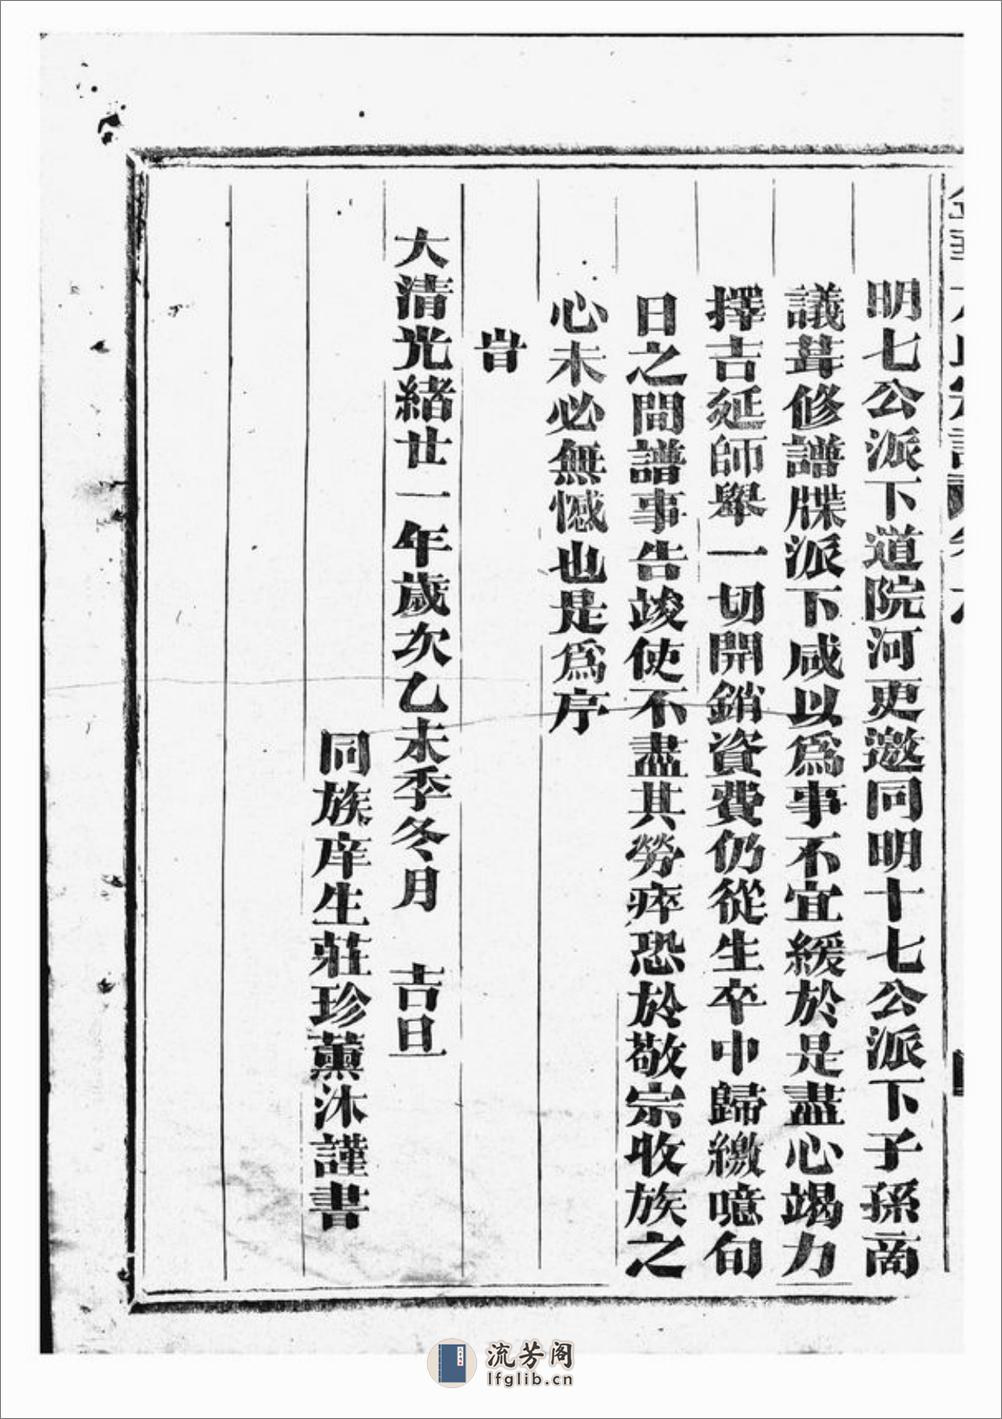 明七公派下道院河更邀同明十七公派下子孫商
議葺修譜牒派下咸以爲事不宜緩於是盡心竭力
擇吉延師舉一切開銷資費仍從生卒中歸繳噫旬
日之間譜事告竣使不盡其勞瘁恐於敬宗收族之
心未必無憾也是爲序
旹
大清光緒廿一年歲次乙未季冬月　吉旦
同族庠生莊珍薰沐謹書
流芳阁
lfglib.cn